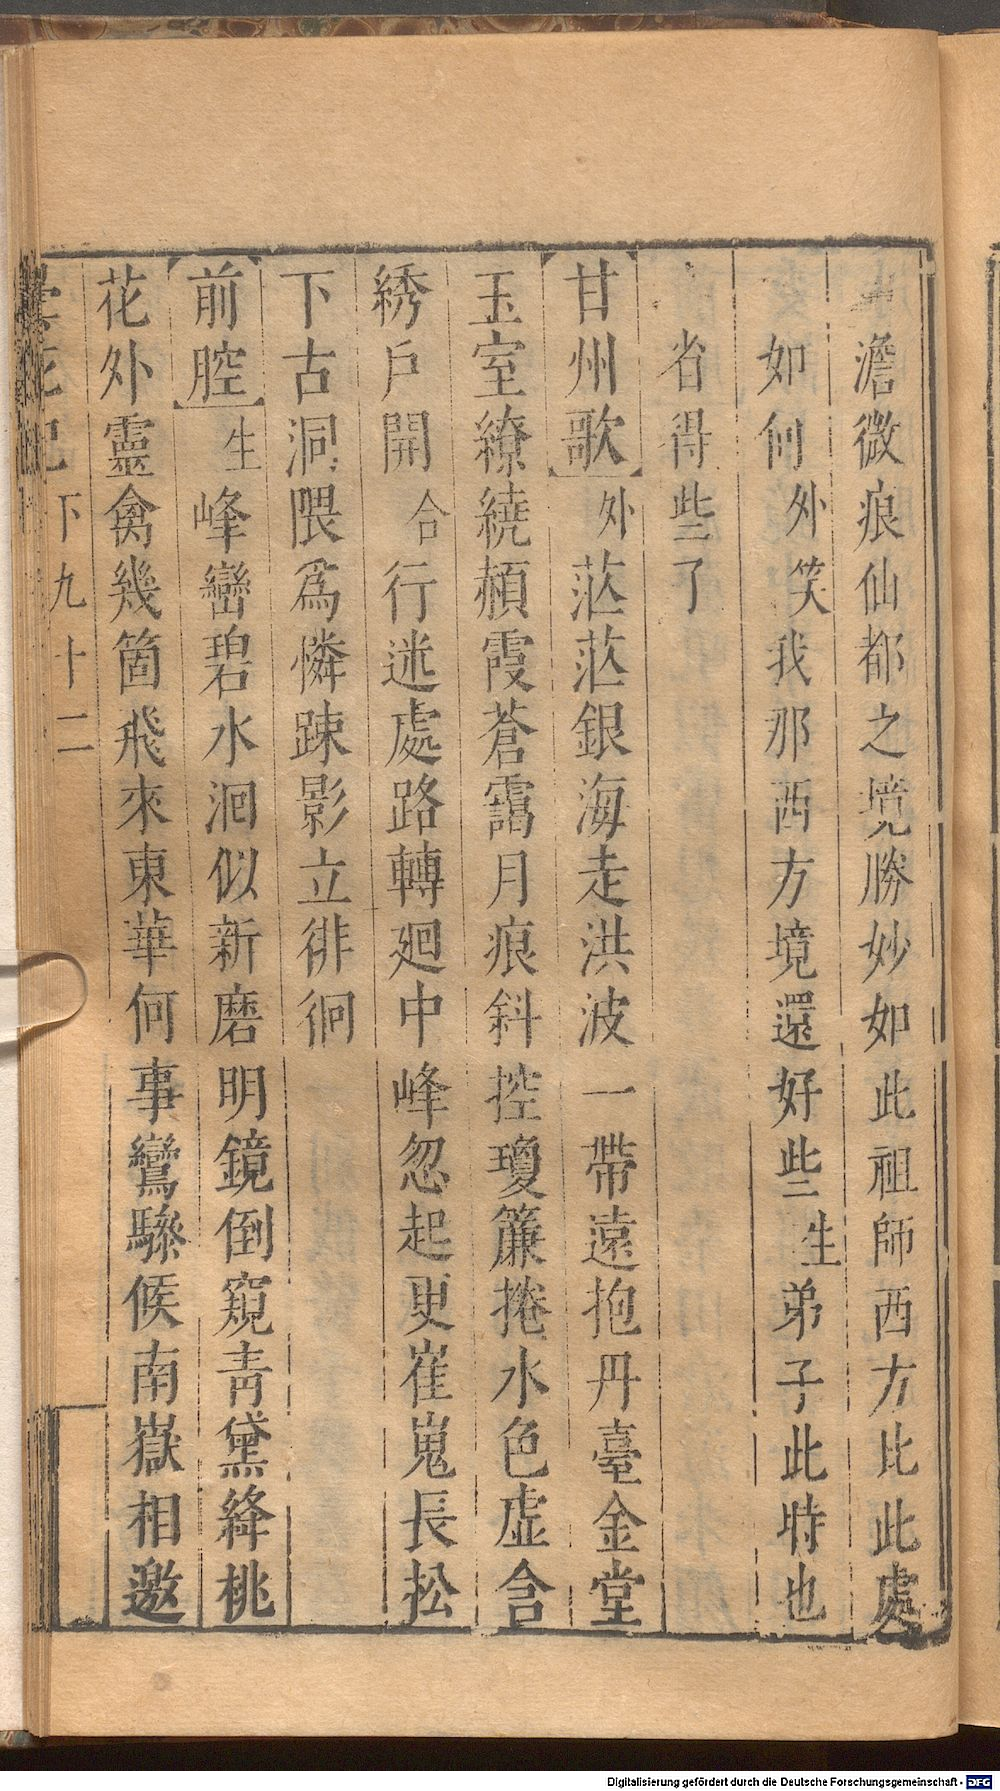 澹微痕仙都之境勝妙如此祖師西方比此處
如何外笑我那西方境還好些生弟子此時也
省得些了
甘州歌外茫茫銀海走洪波一帶遠抱丹臺金堂
玉室繚繞赬霞蒼靄月痕斜控瓊簾捲水色虛含
綉戶開合行迷處路轉廻中峰忽起更崔嵬長松
下古洞隈爲憐踈影立徘徊
前腔生峰巒碧水洄似新磨明鏡倒窺青黛絳桃
花外靈禽幾箇飛來東華何事鸞驂候南嶽相邀
下九十二
Digitalisierung gefördert durch die Deutsche Forschungsgemeinschaft - DFG